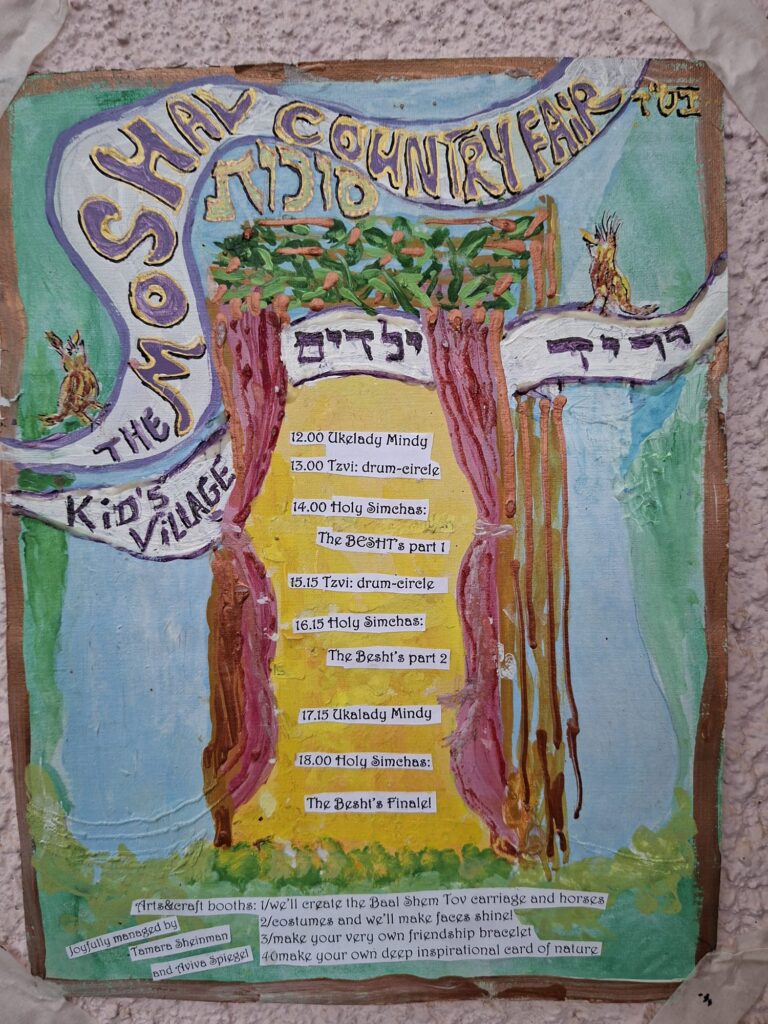 בס"ד
THE MOSHAV COUNTRY FAIR
סוכות
יריד ילדים
KID'S
VILLAGE
12.00 Ukelady Mindy
13.00 Tzvi: drum-circle
14.00 Holy Simchas:
The BESHT's part 1
15.15 Tzvi: drum-circle
16.15 Holy Simchas:
The Besht's part 2
17.15 Ukalady Mindy
18.00 Holy Simchas:
The Besht's Finale!
Arts&craft booths: 1/we'll create the Baal Shem Tov carriage and horses
2/costumes and we'll make faces shine!
3/make your very own friendship bracelet
40make your own deep inspirational card of nature
Joyfully managed by
Tamara Sheinman
and Aviva Spiegel